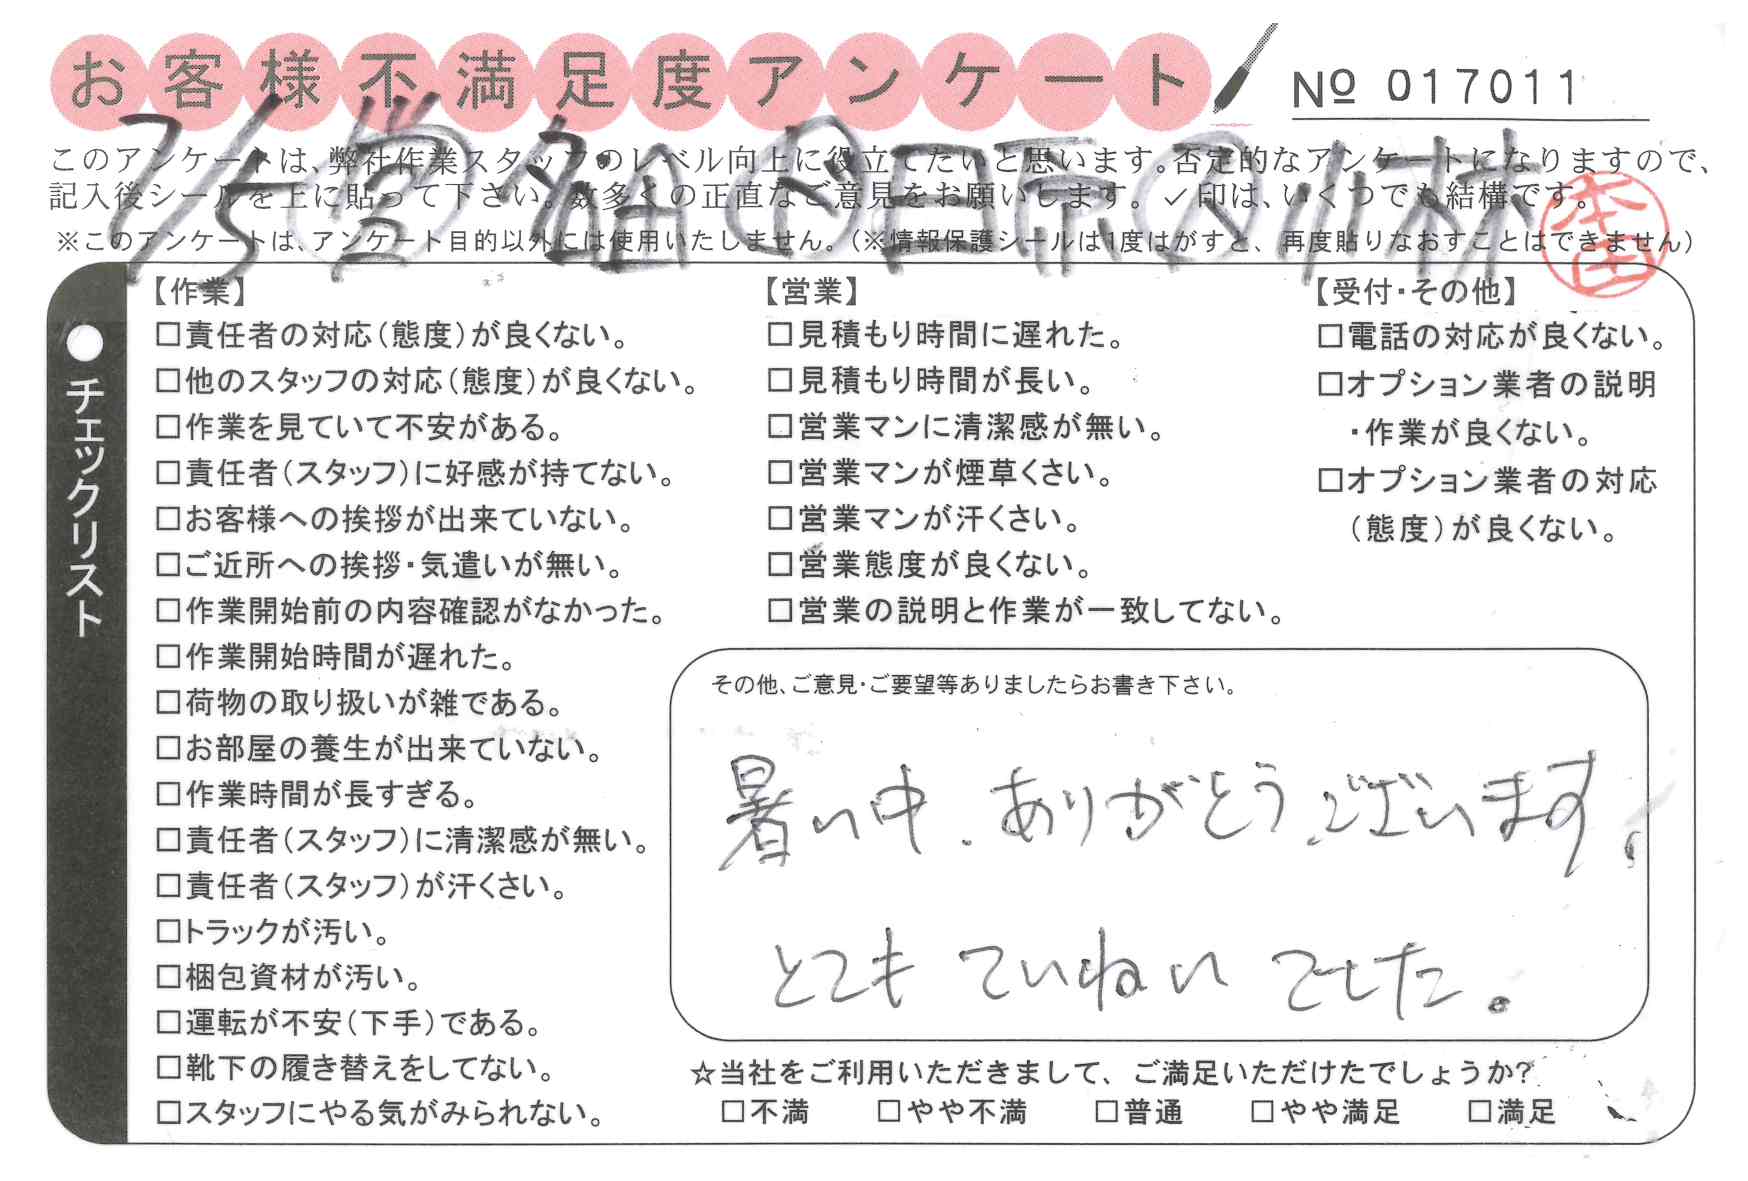 お客様不満足度アンケート
№ 017011
このアンケートは、弊社作業スタッフのレベル向上に役立てたいと思います。否定的なアンケートになりますので、
記入後シールを上に貼って下さい。数多くの正直なご意見をお願いします。✓印は、いくつでも結構です。
※このアンケートは、アンケート目的以外には使用いたしません。(※情報保護シールは1度はがすと、再度貼りなおすことはできません)
7/5 営 小林
チェックリスト
【作業】
□責任者の対応(態度)が良くない。
□他のスタッフの対応(態度)が良くない。
□作業を見ていて不安がある。
□責任者(スタッフ)に好感が持てない。
□お客様への挨拶が出来ていない。
□ご近所への挨拶・気遣いが無い。
□作業開始前の内容確認がなかった。
□作業開始時間が遅れた。
□荷物の取り扱いが雑である。
□お部屋の養生が出来ていない。
□作業時間が長すぎる。
□責任者(スタッフ)に清潔感が無い。
□責任者(スタッフ)が汗くさい。
□トラックが汚い。
□梱包資材が汚い。
□運転が不安(下手)である。
□靴下の履き替えをしてない。
□スタッフにやる気がみられない。
【営業】
□見積もり時間に遅れた。
□見積もり時間が長い。
□営業マンに清潔感が無い。
□営業マンが煙草くさい。
□営業マンが汗くさい。
□営業態度が良くない。
□営業の説明と作業が一致してない。
【受付・その他】
□電話の対応が良くない。
□オプション業者の説明
・作業が良くない。
□オプション業者の対応
(態度)が良くない。
その他、ご意見・ご要望等ありましたらお書き下さい。
暑い中、ありがとうございます。
とてもていねいでした。
☆当社をご利用いただきまして、ご満足いただけたでしょうか?
□不満 □やや不満 □普通 □やや満足 □満足